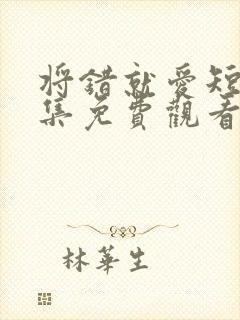 将錯就愛短
集免費觀看
林華生